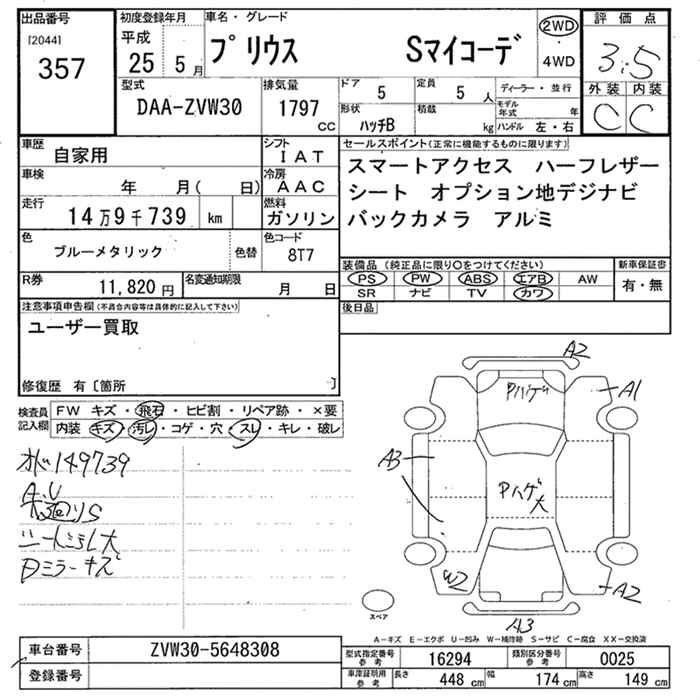 出品番号
[2044]
357
初度登録年月
平成
25年 5月
車名・グレード
プリウス Sマイコーデ
2WD
・
4WD
評価点
3.5
外装 内装
C C
型式
DAA-ZVW30
排気量
1797
cc
ドア
5
定員
5 人
ディーラー・並行
形状
ハッチB
積載
kg
モデル年式 年
ハンドル 左・右
車歴
自家用
シフト
IAT
車検
年 月( 日)
冷房
AAC
走行
14万9千739 km
燃料
ガソリン
色
ブルーメタリック
色替
色コード
8T7
R券
11,820円
名変通知期限
月 日
セールスポイント(正常に機能するものに限ります)
スマートアクセス ハーフレザー
シート オプション地デジナビ
バックカメラ アルミ
装備品(純正品に限り○をつけてください)
PS PW ABS エアB AW
SR ナビ TV カワ
新車保証書
有・無
後日品
注意事項申告欄(不具合内容等は具体的に記入して下さい)
ユーザー買取
修復歴 有〔箇所 〕
検査員
記入欄
FW キズ・飛石・ヒビ割・リペア跡・×要
内装 キズ・汚レ・コゲ・穴・スレ・キレ・破レ
149739
A.U
Pミラーキズ
A2
Pハゲ
A1
A3
Pハゲ
大
W2
A2
A3
スペア
A-キズ E-エクボ U-凹み W-補修跡 S-サビ C-腐食 XX-交換済
車台番号
ZVW30-5648308
登録番号
型式指定番号
参考
16294
類別区分番号
参考
0025
車庫証明用
参考
長さ
448 cm
幅
174 cm
高さ
149 cm